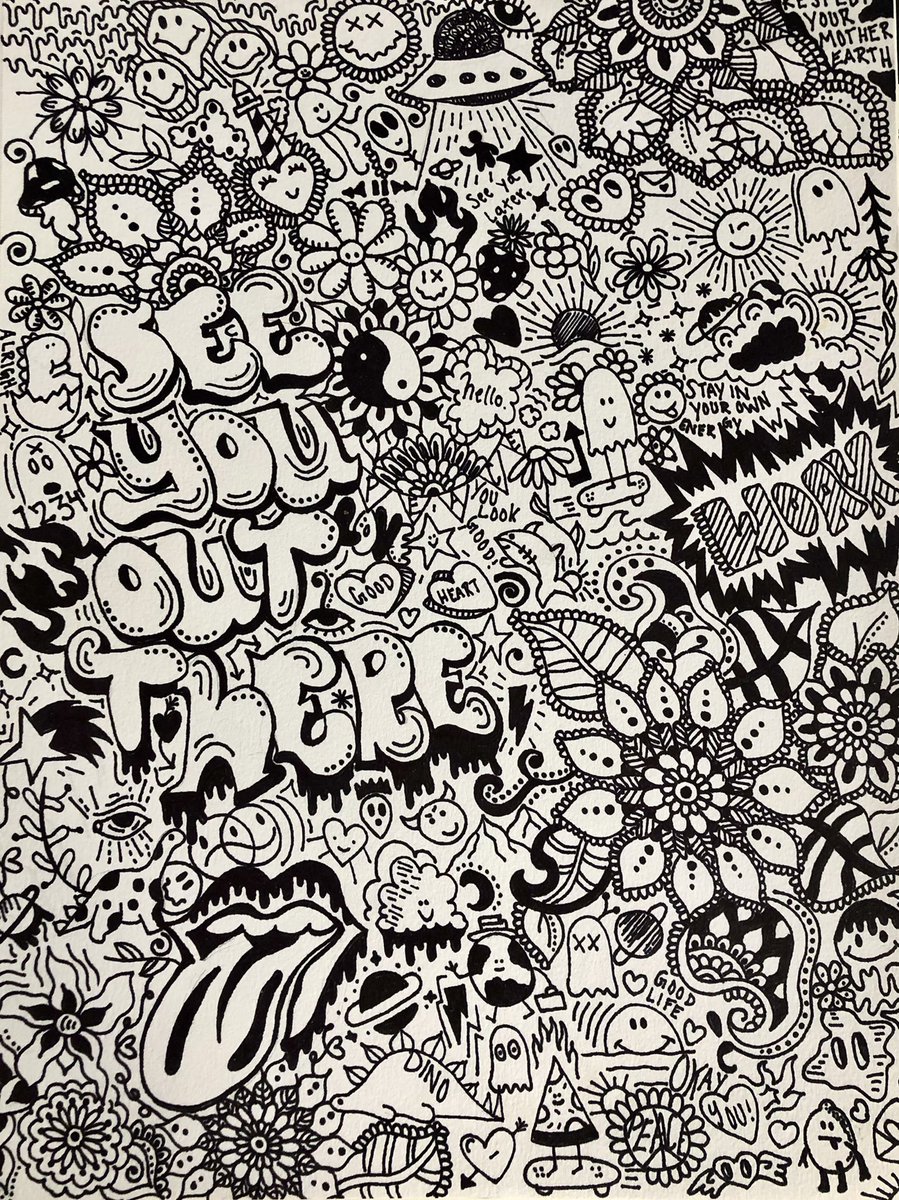 RESPECT
YOUR
MOTHER
EARTH
See Ya
Later.
ALRIGHT
SEE
YOU
OUT
THERE
hello.
STAY IN
YOUR OWN
ENERGY
1234
YOU
LOOK
GOOD!
WORK
GOOD
HEART
GOOD
LIFE
DINO
OKAY
YOU!
PEACE